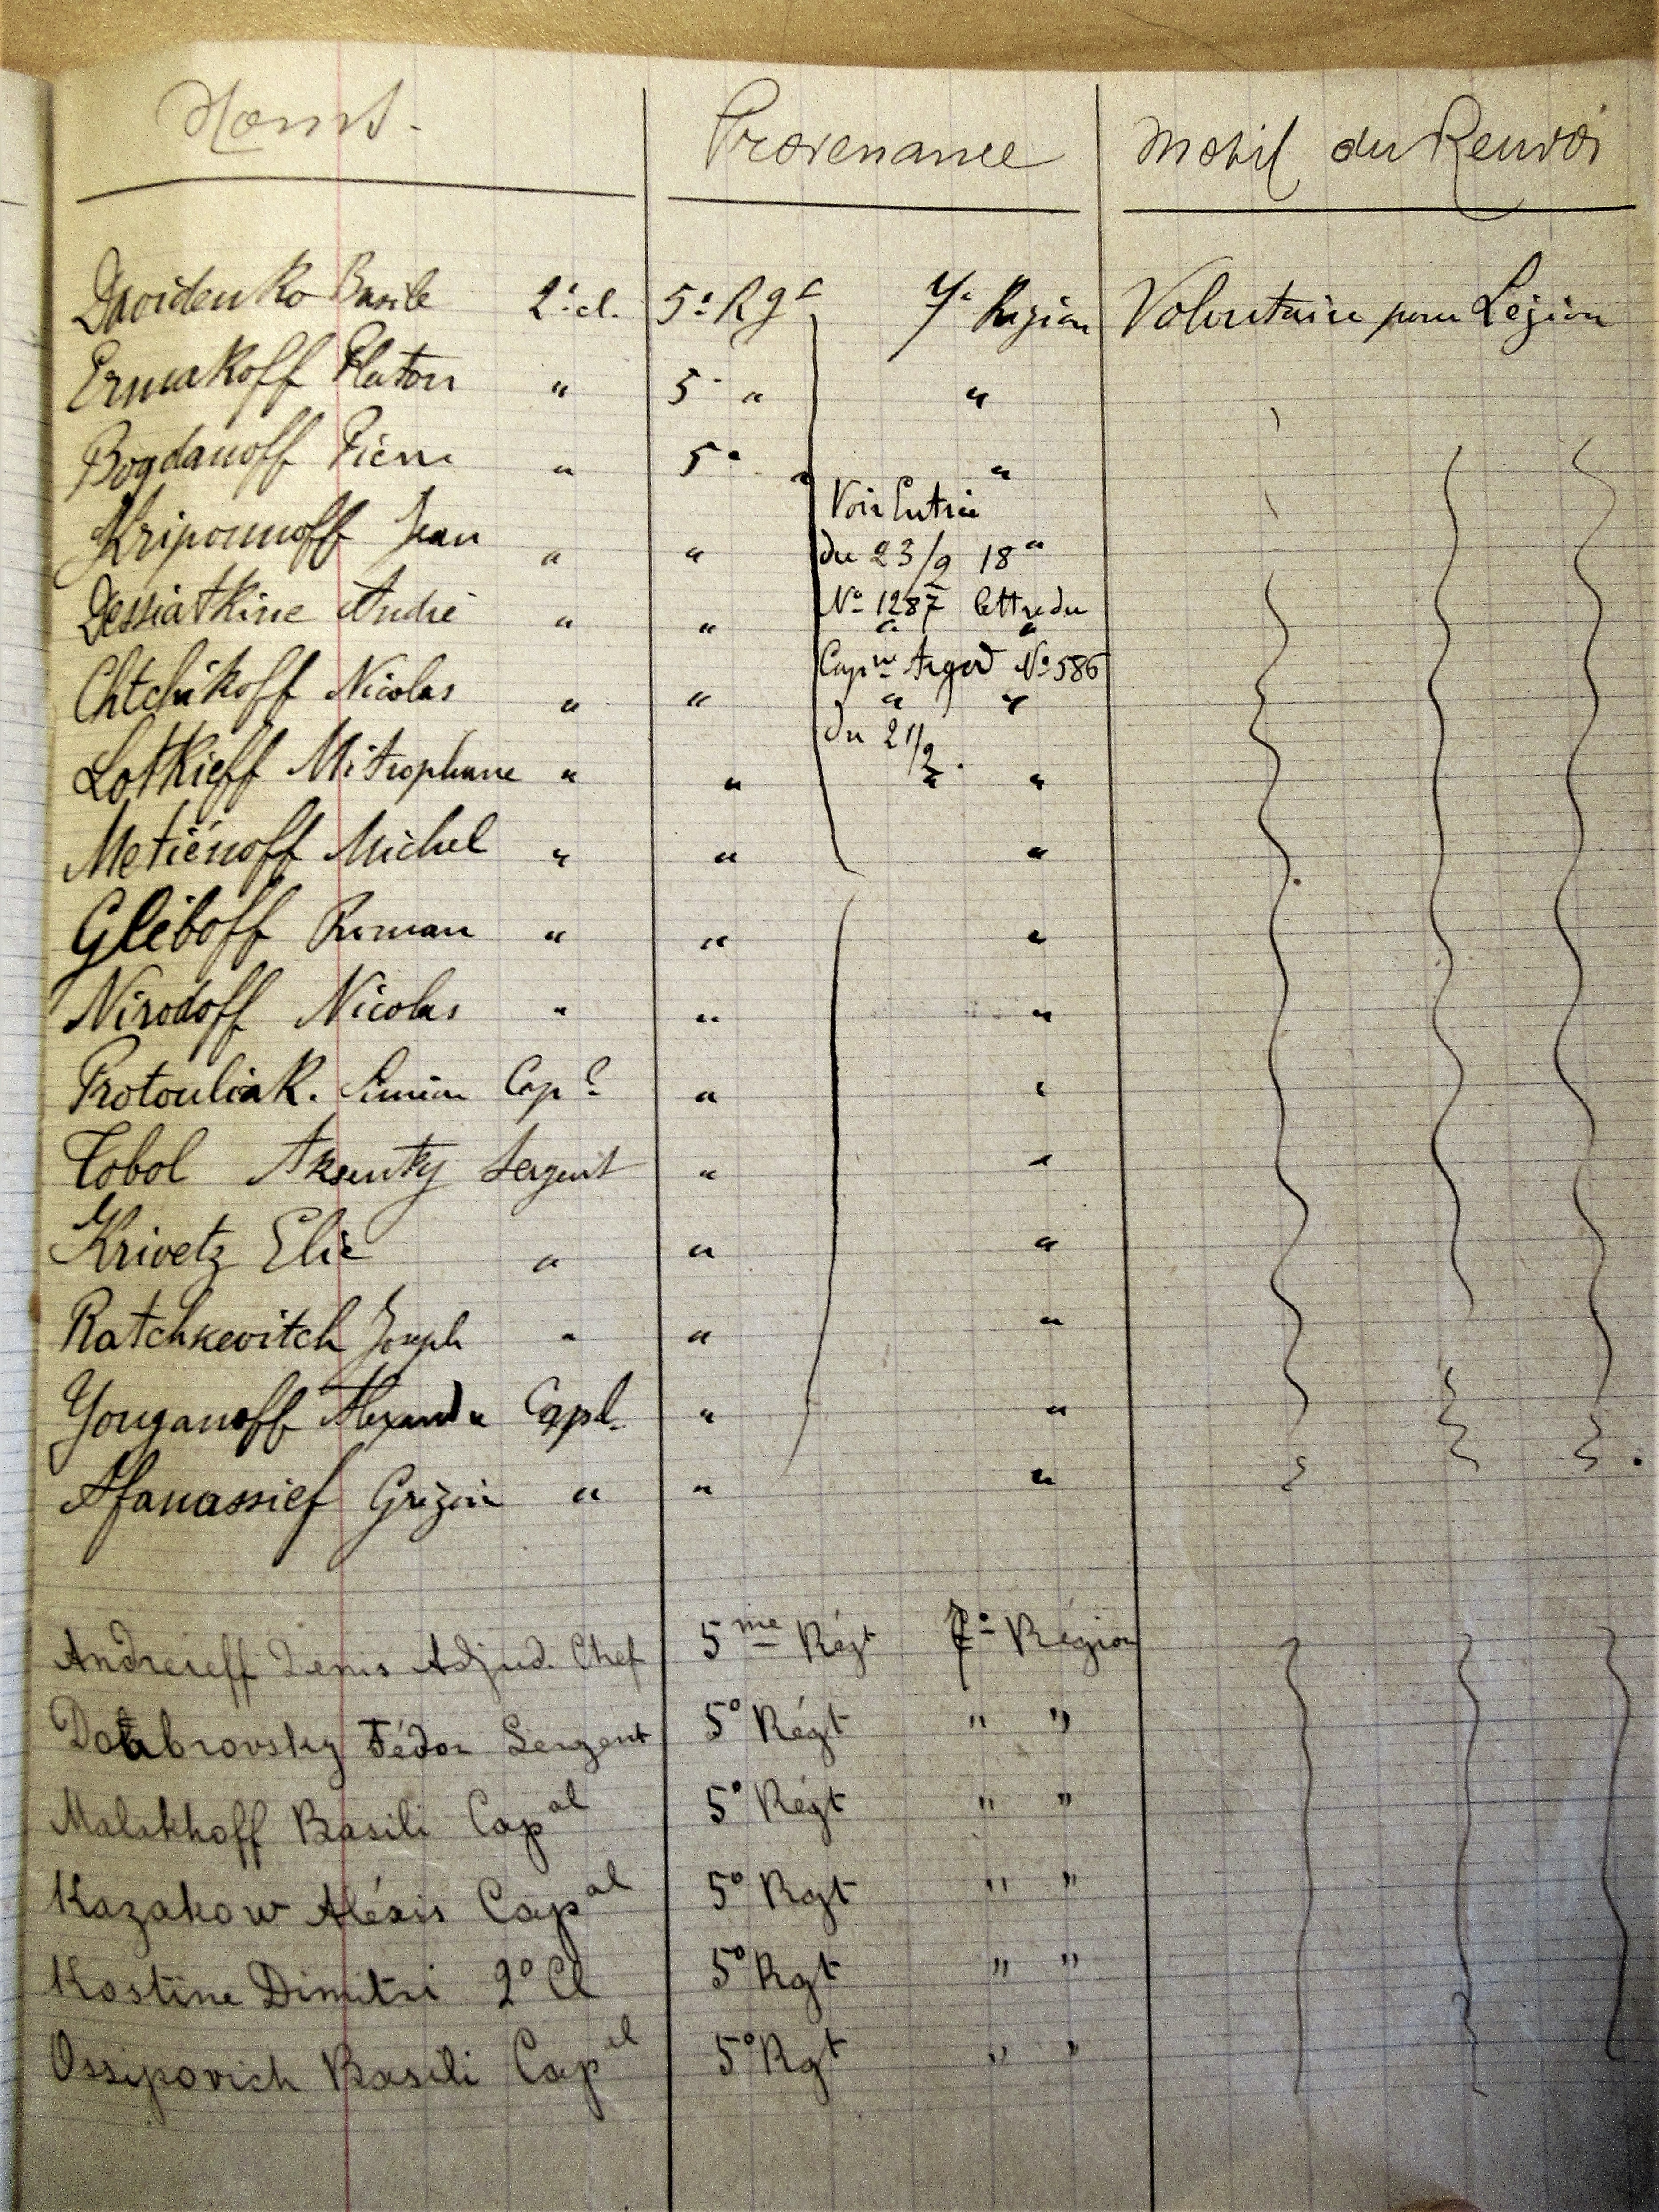 Noms. Provenance Motif du Renvoi
Davidenko Basile 2e cl. 5e Rgt 7e Région Volontaire pour Légion
Ermakoff Platon " 5e " "
Bogdanoff Pierre " 5e " "
Voir Entrée
Kriponnoff Jean " " du 23/9 18 "
Dessiatkine André " " No 1287 lettre du " "
Chtchikoff Nicolas " " Capne Argod No 586 " "
Lotkieff Mitrophane " " du 21/9. " "
Metiénoff Michel " " "
Gléboff Roman " " "
Nirodoff Nicolas " " "
Protouliak. Siméon Capl " "
Cobol Aksenty Sergent " "
Krivetz Elie " " "
Ratchkevitch Joseph " " "
Youganoff Alexandre Capl. " "
Afanassief Grégoire " " "
Andreieff Denis Adjud. Chef 5me Régt 7e Région
Dombrovsky Fédor Sergent 5e Régt " "
Malakhoff Basili Capal 5e Régt " "
Kazakow Aléxis Capal 5e Rgt " "
Kostine Dimitri 2e Cl 5e Rgt " "
Ossipovich Basili Capal 5e Rgt " "